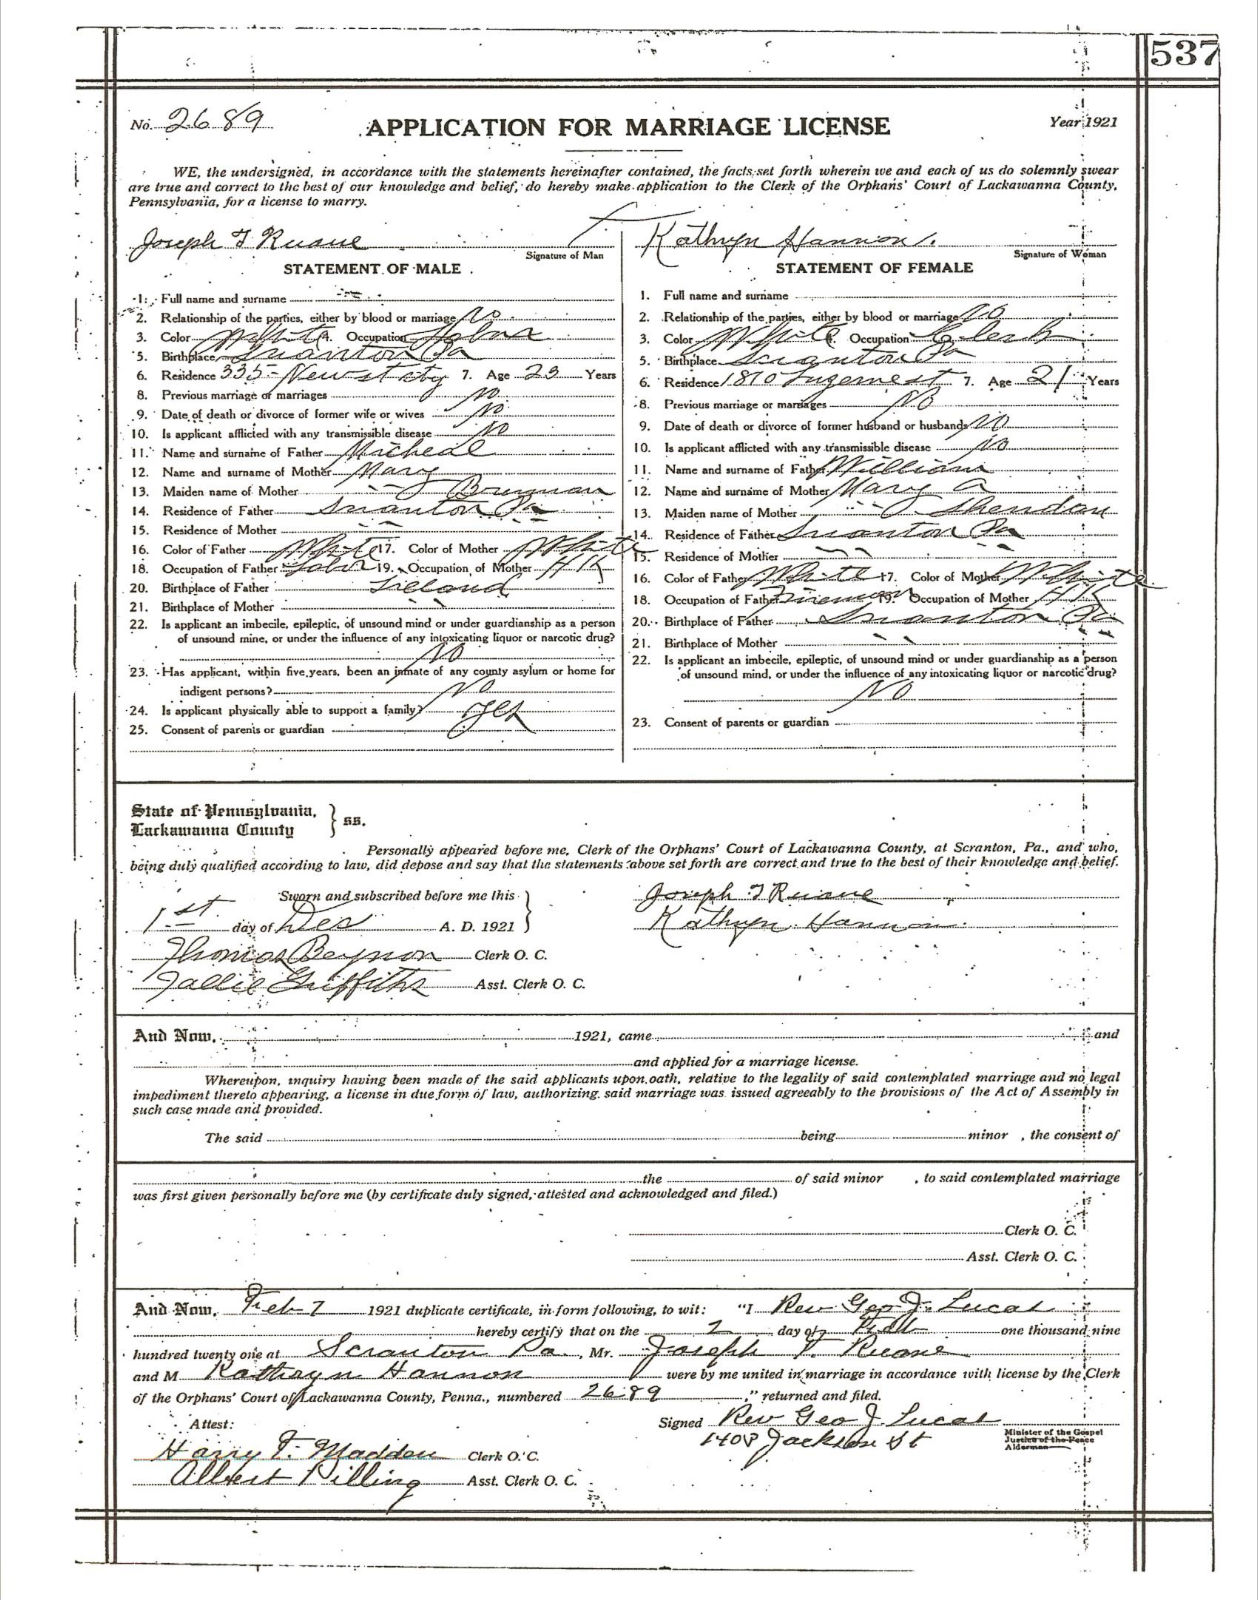 537
No. 2689 APPLICATION FOR MARRIAGE LICENSE Year 1921
WE, the undersigned, in accordance with the statements hereinafter contained, the facts set forth wherein we and each of us do solemnly swear
are true and correct to the best of our knowledge and belief, do hereby make application to the Clerk of the Orphans' Court of Lackawanna County,
Pennsylvania, for a license to marry.
Joseph T Ruane
Signature of Man
STATEMENT OF MALE
1. Full name and surname
2. Relationship of the parties, either by blood or marriage No
3. Color White 4. Occupation Labor
5. Birthplace Scranton Pa
6. Residence 335 New st city 7. Age 23 Years
8. Previous marriage or marriages No
9. Date of death or divorce of former wife or wives No
10. Is applicant afflicted with any transmissible disease No
11. Name and surname of Father Micheal
12. Name and surname of Mother Mary
13. Maiden name of Mother " Brennan
14. Residence of Father Scranton Pa
15. Residence of Mother " "
16. Color of Father White 17. Color of Mother White
18. Occupation of Father Labor 19. Occupation of Mother H K
20. Birthplace of Father Ireland
21. Birthplace of Mother " "
22. Is applicant an imbecile, epileptic, of unsound mind or under guardianship as a person
of unsound mine, or under the influence of any intoxicating liquor or narcotic drug?
No
23. Has applicant, within five years, been an inmate of any county asylum or home for
indigent persons? No
24. Is applicant physically able to support a family? Yes
25. Consent of parents or guardian
Kathryn Hannon.
Signature of Woman
STATEMENT OF FEMALE
1. Full name and surname
2. Relationship of the parties, either by blood or marriage No
3. Color White 4. Occupation Clerk
5. Birthplace Scranton Pa
6. Residence 1810 Luzerne st 7. Age 21 Years
8. Previous marriage or marriages No
9. Date of death or divorce of former husband or husbands No
10. Is applicant afflicted with any transmissible disease No
11. Name and surname of Father William
12. Name and surname of Mother Mary A
13. Maiden name of Mother " Sheridan
14. Residence of Father Scranton Pa
15. Residence of Mother " "
16. Color of Father White 17. Color of Mother White
18. Occupation of Father Fireman 19. Occupation of Mother H K
20. Birthplace of Father Scranton Pa
21. Birthplace of Mother " "
22. Is applicant an imbecile, epileptic, of unsound mind or under guardianship as a person
of unsound mind, or under the influence of any intoxicating liquor or narcotic drug?
No
23. Consent of parents or guardian
State of Pennsylvania,
Lackawanna County } ss.
Personally appeared before me, Clerk of the Orphans' Court of Lackawanna County, at Scranton, Pa., and who,
being duly qualified according to law, did depose and say that the statements above set forth are correct and true to the best of their knowledge and belief.
Sworn and subscribed before me this
1st day of Dec A. D. 1921
Thomas Beynon Clerk O. C.
Sallie Griffiths Asst. Clerk O. C.
Joseph T Ruane
Kathryn Hannon
And Now, 1921, came and
and applied for a marriage license.
Whereupon, inquiry having been made of the said applicants upon oath, relative to the legality of said contemplated marriage and no legal
impediment thereto appearing, a license in due form of law, authorizing said marriage was issued agreeably to the provisions of the Act of Assembly in
such case made and provided.
The said being minor , the consent of
the of said minor , to said contemplated marriage
was first given personally before me (by certificate duly signed, attested and acknowledged and filed.)
Clerk O. C.
Asst. Clerk O. C.
And Now, Feb 7 1921 duplicate certificate, in form following, to wit: "I Rev Geo J. Lucas
hereby certify that on the 2 day of Feb one thousand nine
hundred twenty one at Scranton Pa , Mr. Joseph T. Ruane
and M Kathryn Hannon were by me united in marriage in accordance with license by the Clerk
of the Orphans' Court of Lackawanna County, Penna., numbered 2689 ," returned and filed.
Attest:
Signed Rev Geo J. Lucas
1408 Jackson St
Minister of the Gospel
Justice of the Peace
Alderman
Harry T. Madden Clerk O. C.
Albert Pilling Asst. Clerk O. C.